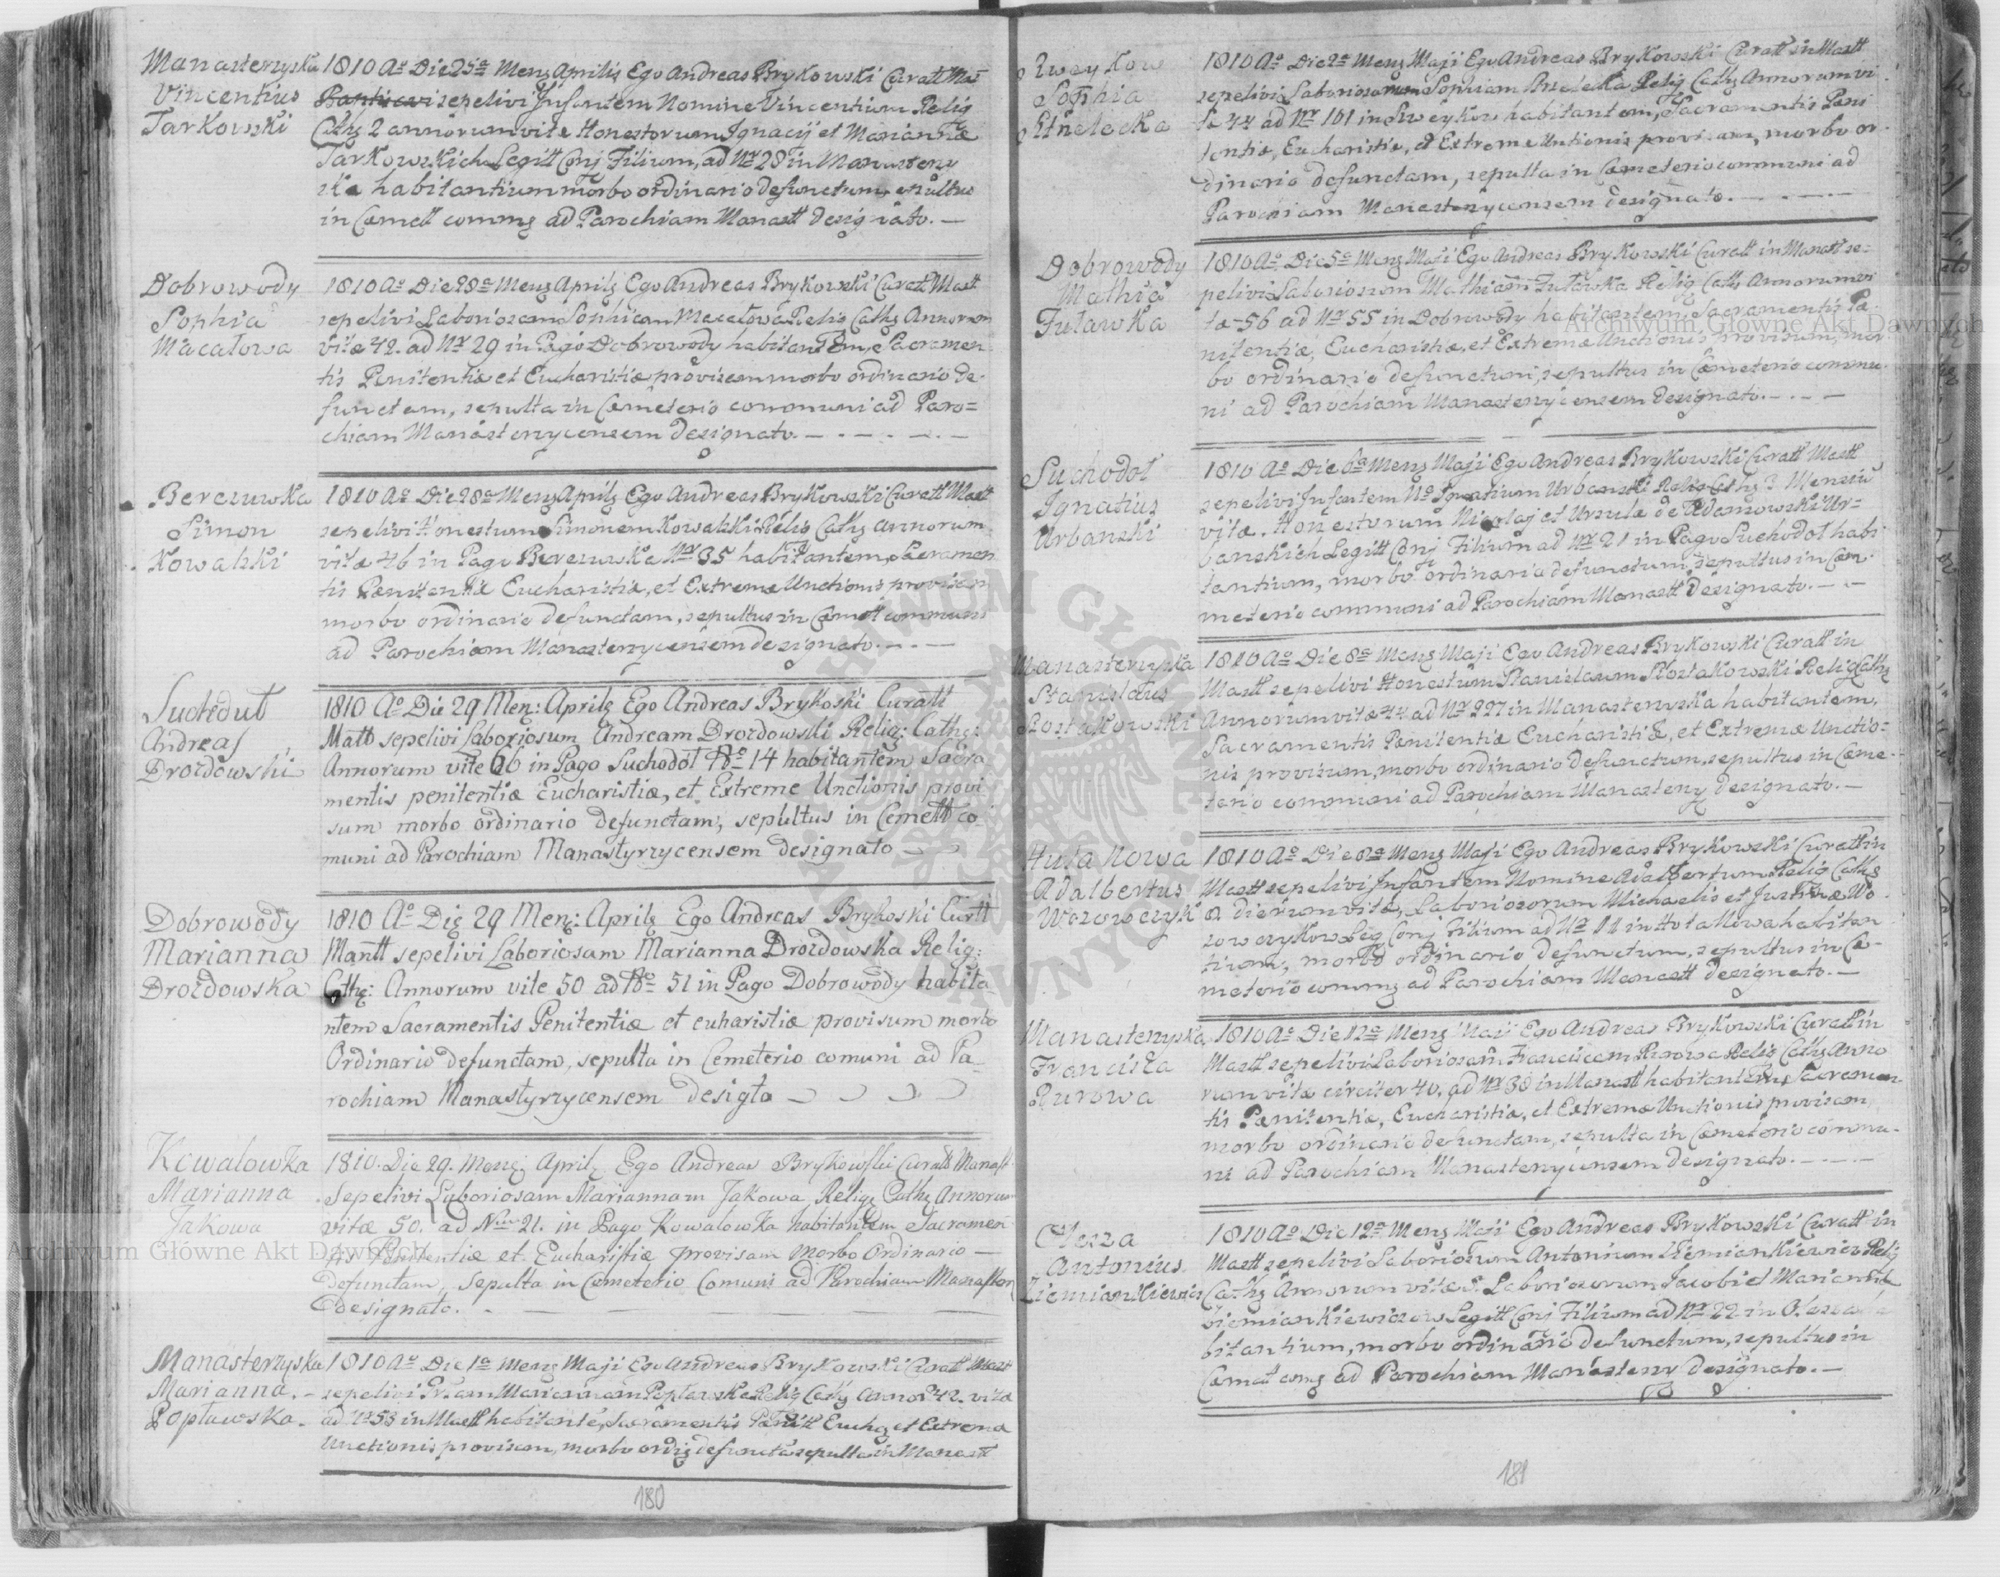 Manasterzyska
Vincentius
Tarkowski
1810 Ao Die 25a Menz Aprilis Ego Andreas Brykowski Curatt Ma=
sepelivi Infantem Nomine Vincentium Relig
Cathz 2 annorum vitæ Honestorum Ignacij et Mariannæ
Tarkowskich Legitt Conj Filium, ad Nr 28 in Manasterzy
ska habitantium morbo ordinario defunctum, sepultus
in Cœmett commz ad Parochiam Manastt designato. —
Dobrowody
Sophia
Macałowa
1810 Ao Die 28a Menz Aprilz Ego Andreas Brykowski Curatt Mastt
sepelivi Laboriosam Sophiam Macałowa Relig Cathz Annorum
vitæ 42. ad Nr 29 in Pago Dobrowody habitantem, Sacramen
tis Pænitentiæ et Eucharistiæ provisam morbo ordinario de-
functam, sepulta in Cæmeterio communi ad Paro=
chiam Manasterzycensem designato. — . — . — . —
Berezuwka
Simon
Kowalski
1810 Ao Die 28a Menz Aprilz Ego Andreas Brykowski Curatt Mastt
sepelivi Honestum Simonem Kowalski Relig Cathz annorum
vitæ 46 in Pago Berezuwka Nr 35 habitantem, Sacramen
tis Pænitentiæ Eucharistiæ, et Extremæ Unctionis provisam
morbo ordinario defunctam, sepultus in Cæmett communi
ad Parochiam Manasterzycensem designato. — . —
Suchduł
Andreas
Drozdowski
1810 Ao Die 29 Menz: Aprilz Ego Andreas Brykoski Curatt
Matt sepelivi Laboriosum Andream Drozdowski Relig: Cathz:
Annorum vite 66 in Pago Suchodoł No 14 habitantem Sacra
mentis penitentiæ Eucharistiæ, et Extreme Unctionis provi
sum morbo ordinario defunctam, sepultus in Cemett co-
muni ad Parochiam Manastyrzycensem designato
Dobrowody
Marianna
Drozdowska
1810 Ao Die 29 Menz: Aprilz Ego Andreas Brykoski Curtt
Mantt sepelivi Laboriosam Marianna Drozdowska Relig:
Cthz: Annorum vite 50 ad No 51 in Pago Dobrowody habita
ntem Sacramentis Penitentiæ et euharistiæ provisum morbo
Ordinario defunctam, sepulta in Cemeterio comuni ad Pa-
rochiam Manastyrzycensem desigto
Kowalowka
Marianna
Jakowa
1810. Die 29. Menz Aprilz Ego Andreas Brykowski Curatt Manast
Sepelivi Laboriosam Mariannam Jakowa, Religz Cathz Annorum
vitæ 50. ad Nrum 21. in Pago Kowalowka habitantem Sacramen
tis Penitentiæ et Eucharistiæ provisam Morbo Ordinario —
Defunctam, Sepulta in Cemeterio Comuni ad Parochiam Manaster
designato. — — —
Manasterzyska
Marianna. —
Popławska.
1810 Ao Die 1a Menz Maji Ego Andreas Brykowski Curatt Mastt
sepelivi Mariannam Popławska Relig Cathz Annor 42. vitæ
ad Nr 53 in Mastt habitante, Sacramentis Pænitt Euchz et Extrema
Unctionis provisam, morbo ordiz defuncta sepulta in Manastt
180
Zweykow
Sophia
Strzelecka
1810 Ao Die 2a Menz Maji Ego Andreas Brykowski Curatt in Mastt
sepelivi Laboriosam Sophiam Relig Cathz Annorum vi
tæ 44 ad Nr 101 in Zweykow habitantem, Sacramentis Pæni
tentiæ, Eucharistiæ, et Extremæ Unctionis provisam, morbo or-
dinario defunctam, sepulta in Cæmeterio communi ad
Parochiam Manasterzycensem designato. — . — . —
Dobrowody
Mathias
Tuławka
1810 Ao Die 5a Menz Maji Ego Andreas Brykowski Curatt in Manastt se-
pelivi Laboriosum Mathiam Tuławka Relig Cathz Annorum vi
tæ 56 ad Nr 55 in Dobrowody habitantem, Sacramentis Pæ
nitentiæ, Eucharistiæ, et Extremæ Unctionis provisum, mor-
bo ordinario defunctum, sepultus in Cæmeterio commu-
ni ad Parochiam Manasterzycensem designato. — . — . —
Suchodoł
Ignatius
Urbanski
1810 Ao Die 6a Menz Maji Ego Andreas Brykowski Curatt Mastt
sepelivi Infantem No Ignatium Urbanski Relig Cathz 3 Mensiu
vitæ. Honestorum Nicolaj et Ursulæ de Adamowski Ur=
banskich Legitt Conj Filium ad Nr 21 in Pago Suchodoł habi
tantium, morbo ordinario defunctum, sepultus in Cæm-
meterio communi ad Parochiam Manastt designato. — . —
Manasterzyska
Stanislaus
Rostakowski
1810 Ao Die 8a Menz Maji Ego Andreas Brykowski Curatt in
Mastt sepelivi Honestum Stanislaum Rostakowski Relig Cathz
Annorum vitæ 44 ad Nr 227 in Manasterzyska habitantem,
Sacramentis Pænitentiæ Eucharistiæ, et Extremæ Unctio=
nis provisum, morbo ordinario defunctum, sepultus in Cæme-
terio communi ad Parochiam Manasterzy designato. —
Huta Nowa
Adalbertus
Wozowczyk
1810 Ao Die 8a Menz Maji Ego Andreas Brykowski Curatt in
Mastt sepelivi Infantem Nomine Adalbertum Relig Cathz
dierum vitæ, Laboriosorum Michaelis et Justinæ Wo-
zowczykow Leg Conj Filium ad Nr 11 in Huta Nowa habitan
tium, morbo ordinario defunctum, sepultus in Cæ-
meterio commz ad Parochiam Manastt designato. —
Manasterzyska
Franciska
Rurowa
1810 Ao Die 12a Menz Maji Ego Andreas Brykowski Curatt in
Mastt sepelivi Laboriosam Franciscam Rurowa Relig Cathz Anno
rum vitæ circiter 40. ad Nr 30 in Manastt habitantem, Sacramen
tis Pænitentiæ, Eucharistiæ, et Extremæ Unctionis provisam,
morbo ordinario defunctam, sepulta in Cæmeterio commu-
ni ad Parochiam Manasterzycensem designato. — . — . —
Olesza
Antonius
Ziemiankiewicz
1810 Ao Die 12a Menz Maji Ego Andreas Brykowski Curatt in
Mastt sepelivi Laboriosum Antonium Ziemiankiewicz Relig
Cathz Annorum vitæ Laboriosorum Jacobi et Mariannæ
Ziemiankiewiczow Legitt Conj Filium ad Nr 22 in Olesza ha
bitantium, morbo ordinario defunctum, sepultus in
Cæmett comz ad Parochiam Manasterzy designato. —
181
Archiwum Główne Akt Dawnych
Archiwum Główne Akt Dawnych
ARCHIWUM GŁÓWNE AKT DAWNYCH